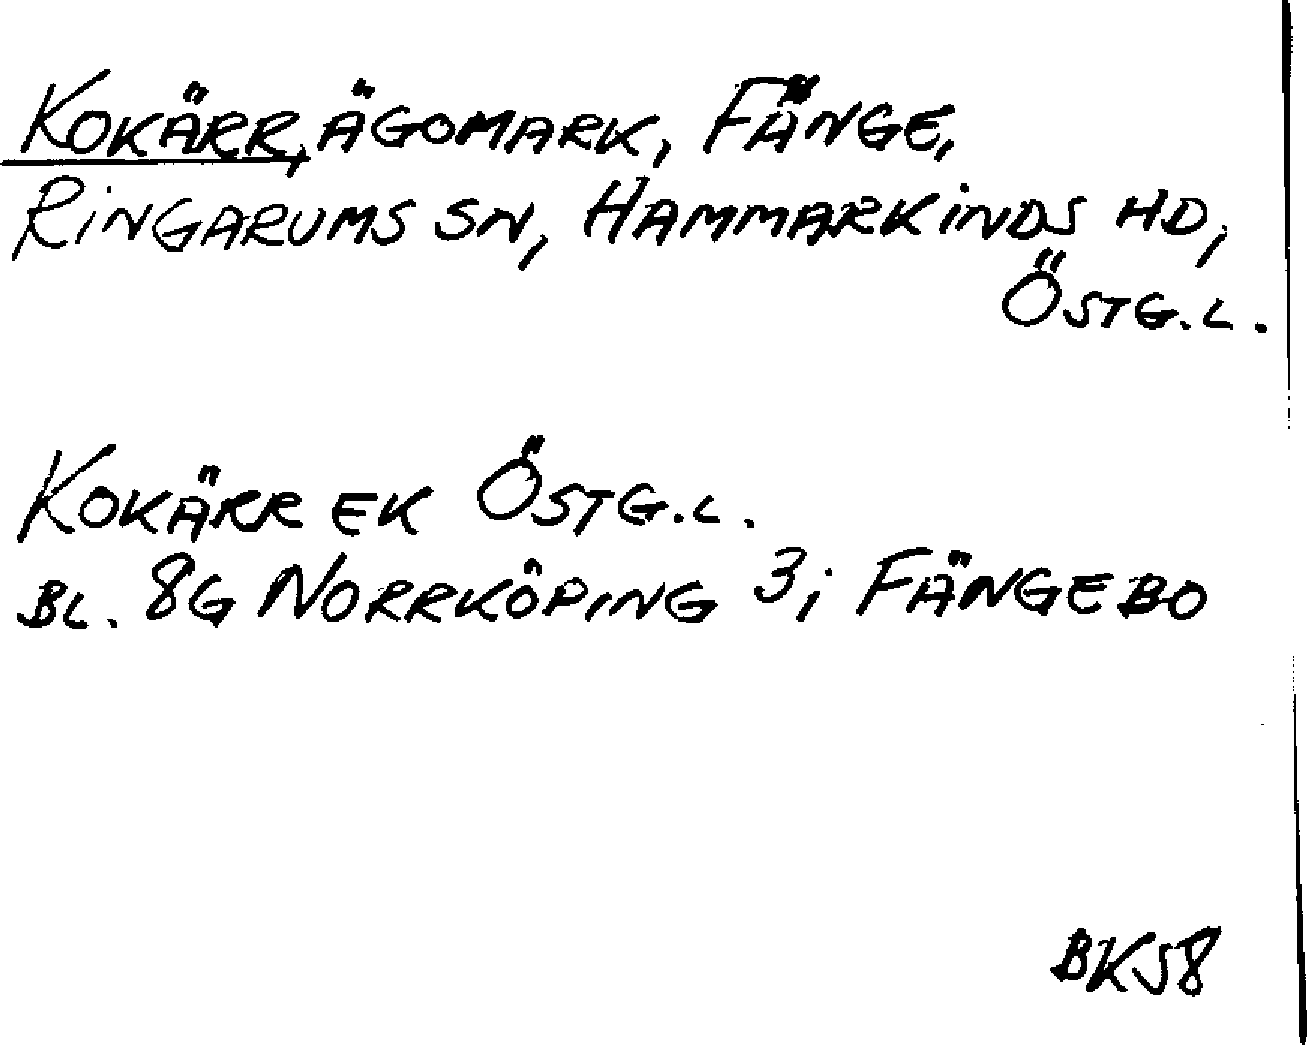 KOKÄRR, ÄGOMARK, FÄNGE,
RINGARUMS SN, HAMMARKINDS HD,
ÖSTG.L.
KOKÄRR EK ÖSTG.L.
BL. 8G NORRKÖPING 3; FÄNGEBO
BK58